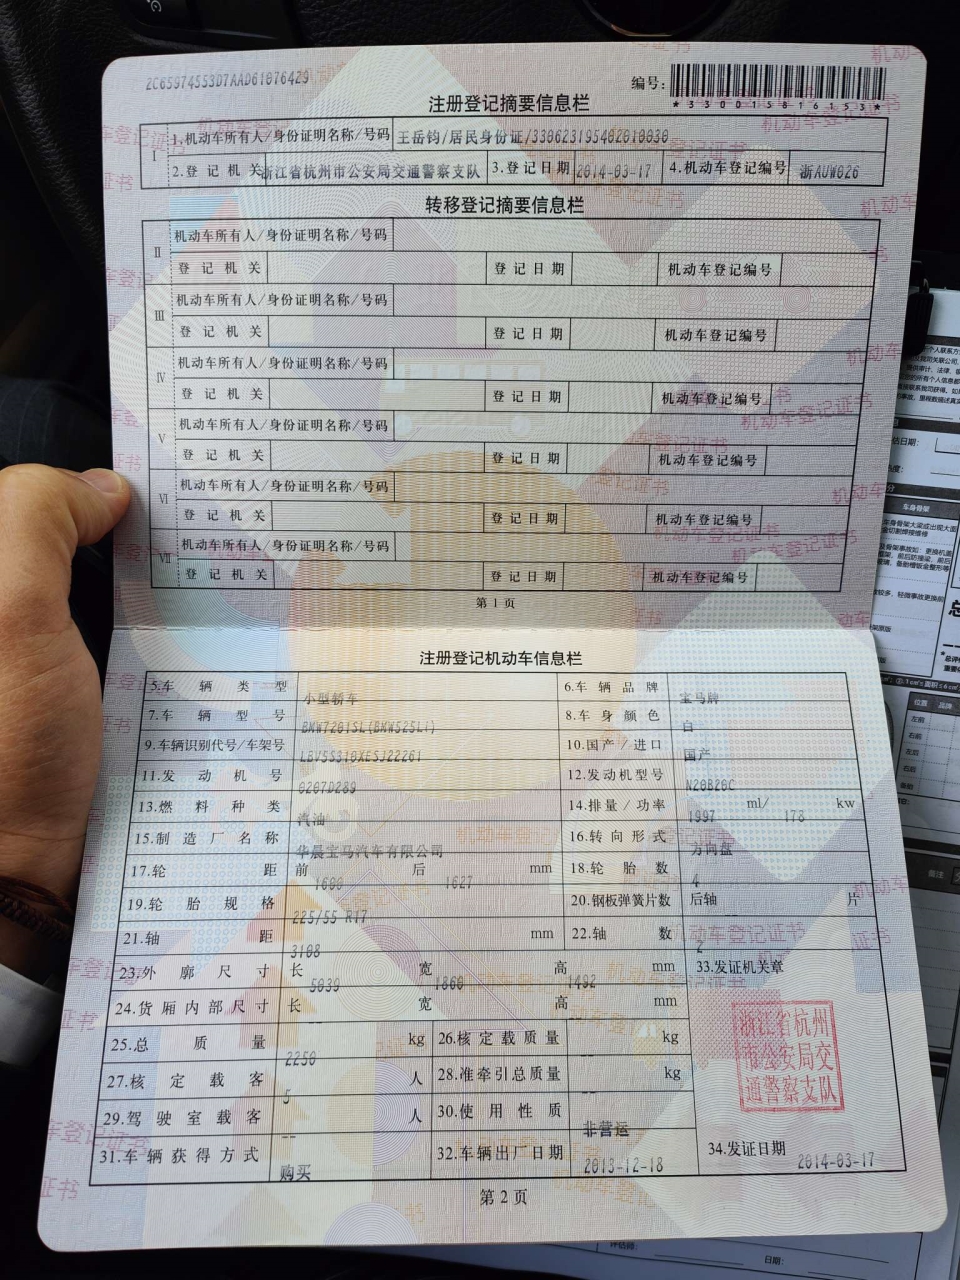 2C65974553D7AAD61076429
编号：
*330015816153*
注册登记摘要信息栏
I
1.机动车所有人/身份证明名称/号码 王岳钧/居民身份证/330623195402010030
2.登记机关 浙江省杭州市公安局交通警察支队 3.登记日期 2014-03-17 4.机动车登记编号 浙AUW026
转移登记摘要信息栏
II
机动车所有人/身份证明名称/号码
登记机关 登记日期 机动车登记编号
III
机动车所有人/身份证明名称/号码
登记机关 登记日期 机动车登记编号
IV
机动车所有人/身份证明名称/号码
登记机关 登记日期 机动车登记编号
V
机动车所有人/身份证明名称/号码
登记机关 登记日期 机动车登记编号
VI
机动车所有人/身份证明名称/号码
登记机关 登记日期 机动车登记编号
VII
机动车所有人/身份证明名称/号码
登记机关 登记日期 机动车登记编号
第1页
注册登记机动车信息栏
5.车辆类型 小型轿车 6.车辆品牌 宝马牌
7.车辆型号 BMW7201SL(BMW525Li) 8.车身颜色 白
9.车辆识别代号/车架号 LBV5S310XESJ22261 10.国产/进口 国产
11.发动机号 0207D289 12.发动机型号 N20B20C
13.燃料种类 汽油 14.排量/功率 1997 ml/ 178 kw
15.制造厂名称 华晨宝马汽车有限公司 16.转向形式 方向盘
17.轮距 前 1600 后 1627 mm 18.轮胎数 4
19.轮胎规格 225/55 R17 20.钢板弹簧片数 后轴 片
21.轴距 3108 mm 22.轴数 2
23.外廓尺寸 长 5039 宽 1860 高 1492 mm 33.发证机关章
24.货厢内部尺寸 长 -- 宽 -- 高 -- mm
浙江省杭州
市公安局交
通警察支队
25.总质量 2250 kg 26.核定载质量 -- kg
27.核定载客 5 人 28.准牵引总质量 -- kg
29.驾驶室载客 -- 人 30.使用性质 非营运
31.车辆获得方式 购买 32.车辆出厂日期 2013-12-18 34.发证日期 2014-03-17
第2页
车身骨架
位置 品牌
左前
右前
左后
右后
备注
日期：